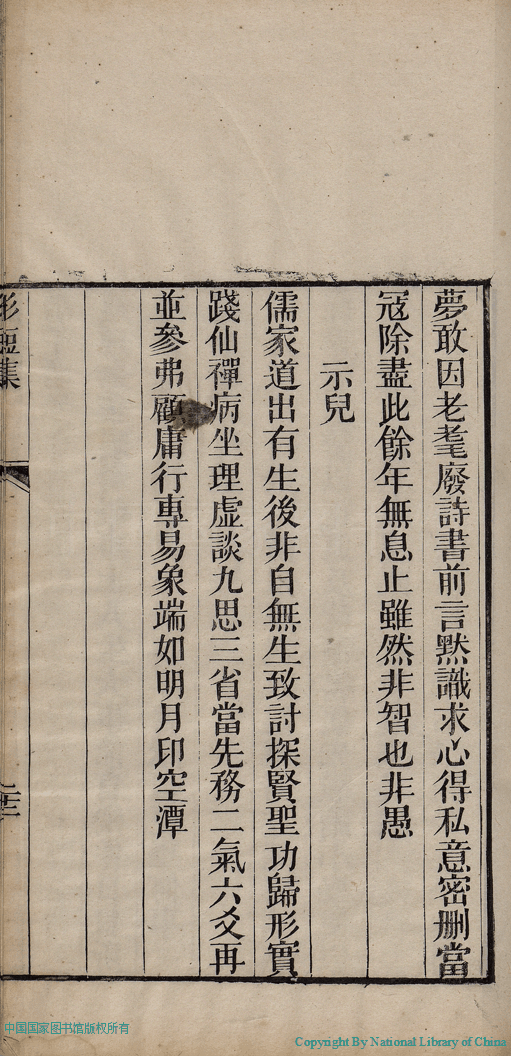 夢敢因老耄廢詩書前言默識求心得私意密刪當
冦除盡此餘年無息止雖然非智也非愚
示兒
儒家道出有生後非自無生致討探賢聖功歸形實
踐仙禪病坐理虛談九思三省當先務二氣六爻再
並參弗顧庸行專易象端如明月印空潭
集
二十二
中国国家图书馆版权所有
Copyright By National Library of China